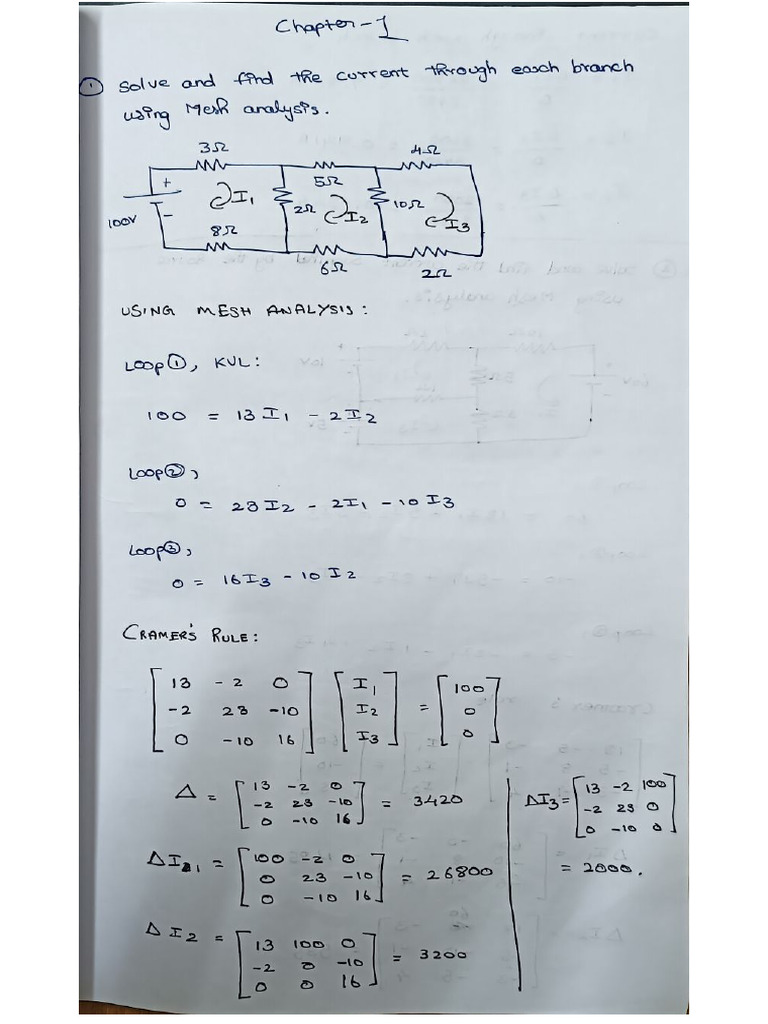 Chapter-1
① Solve and find the current through each branch
using Mesh analysis.
3Ω 5Ω 4Ω
+
100V
-
I1 2Ω I2 10Ω I3
8Ω 6Ω 2Ω
USING MESH ANALYSIS:
Loop①, KVL:
100 = 13I1 - 2I2
Loop②,
0 = 23I2 - 2I1 - 10I3
Loop③,
0 = 16I3 - 10I2
CRAMER'S RULE:
[13 -2 0] [I1] [100]
[-2 23 -10] [I2] = [0]
[0 -10 16] [I3] [0]
Δ = [13 -2 0
-2 23 -10
0 -10 16] = 3420
ΔI1 = [100 -2 0
0 23 -10
0 -10 16] = 26800
ΔI2 = [13 100 0
-2 0 -10
0 0 16] = 3200
ΔI3 = [13 -2 100
-2 23 0
0 -10 0]
= 2000.